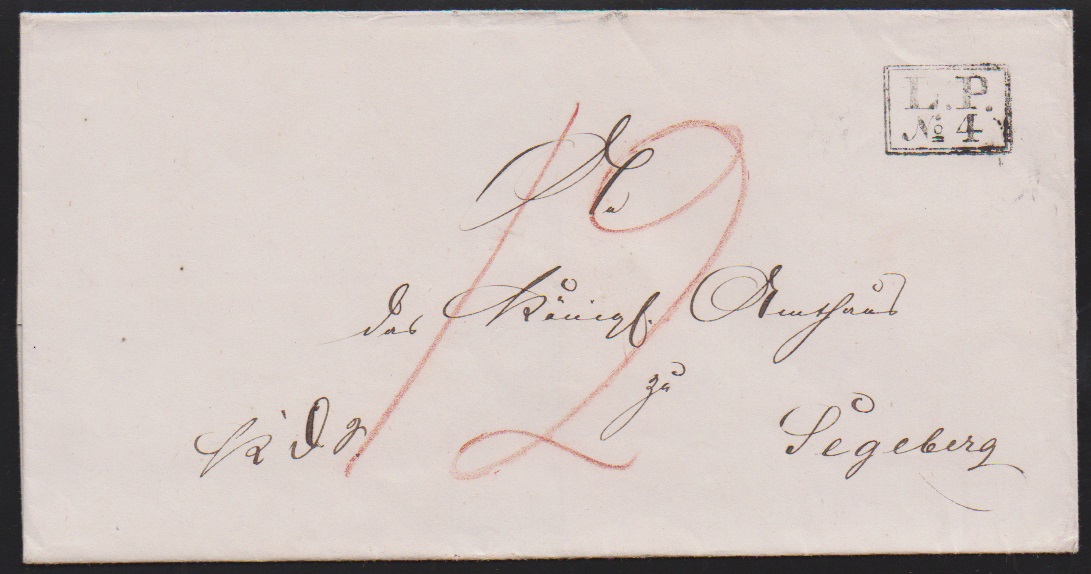 L.P.
№ 4
12
An
das Königl. Amthaus
zu
Segeberg
K D S